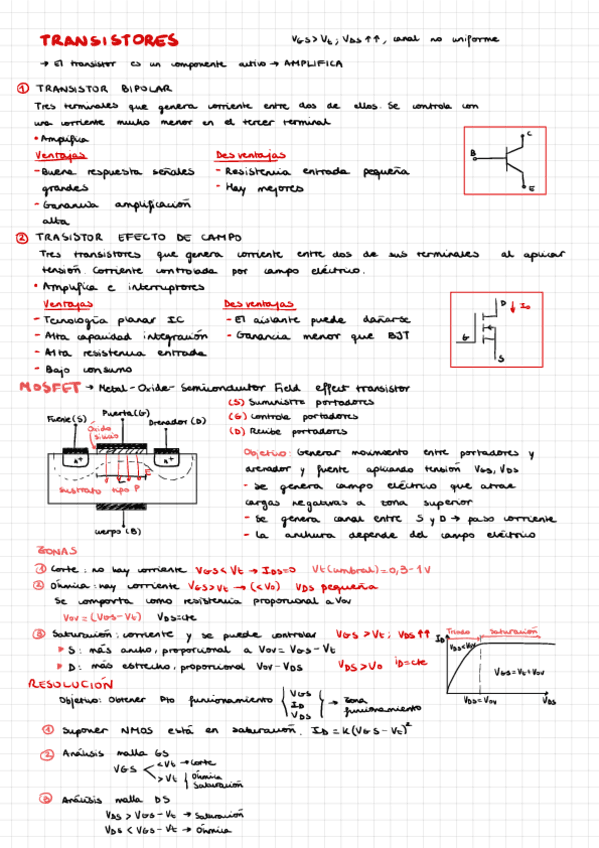 TRANSISTORES
VGS > Vt ; VDS ↑↑ , canal no uniforme
→ El transistor es un componente activo → AMPLIFICA
① TRANSISTOR BIPOLAR
Tres terminales que genera corriente entre dos de ellos. Se controla con
una corriente mucho menor en el tercer terminal
• Amplifica
Ventajas
- Buena respuesta señales
grandes
- Ganancia amplificación
alta
Desventajas
- Resistencia entrada pequeña
- Hay mejores
C
B
E
② TRASISTOR EFECTO DE CAMPO
Tres transistores que genera corriente entre dos de sus terminales al aplicar
tensión. Corriente controlada por campo eléctrico.
• Amplifica e interruptores
Ventajas
- Tecnología planar IC
- Alta capacidad integración
- Alta resistencia entrada
- Bajo consumo
Desventajas
- El aislante puede dañarse
- Ganancia menor que BJT
D
↓ ID
G
S
MOSFET → Metal-Oxide-Semiconductor Field effect transistor
(S) Suministra portadores
(G) Controla portadores
(D) Recibe portadores
Fuente (S)
Puerta (G)
Drenador (D)
Óxido
silicio
n+
n+
E
L
sustrato tipo P
cuerpo (B)
Objetivo: Generar movimiento entre portadores y
drenador y fuente aplicando tensión VGS, VDS
- Se genera campo eléctrico que atrae
cargas negativas a zona superior
- Se genera canal entre S y D → paso corriente
- La anchura depende del campo eléctrico
ZONAS
① Corte : no hay corriente VGS < Vt → IDS=0 Vt (umbral) = 0,3-1V
② Óhmica : hay corriente VGS > Vt → (< V0) VDS pequeña
Se comporta como resistencia proporcional a Vov
Vov = (VGS - Vt) VDS = cte
③ Saturación : corriente y se puede controlar VGS > Vt ; VDS ↑↑
▸ S : más ancho, proporcional a Vov = VGS - Vt
▸ D : más estrecho, proporcional Vov - VDS VDS > V0 iD = cte
ID
Triodo
saturación
VDS < Vov
VGS = Vt + Vov
VDS = Vov
VDS
RESOLUCIÓN
Objetivo: Obtener Pto funcionamiento { VGS ID VDS } → Zona funcionamiento
① Suponer NMOS está en saturación. ID = K (VGS - Vt)²
② Análisis malla GS
VGS < Vt → Corte
> Vt { Óhmica
Saturación
③ Análisis malla DS
VDS > VGS - Vt → Saturación
VDS < VGS - Vt → Óhmica